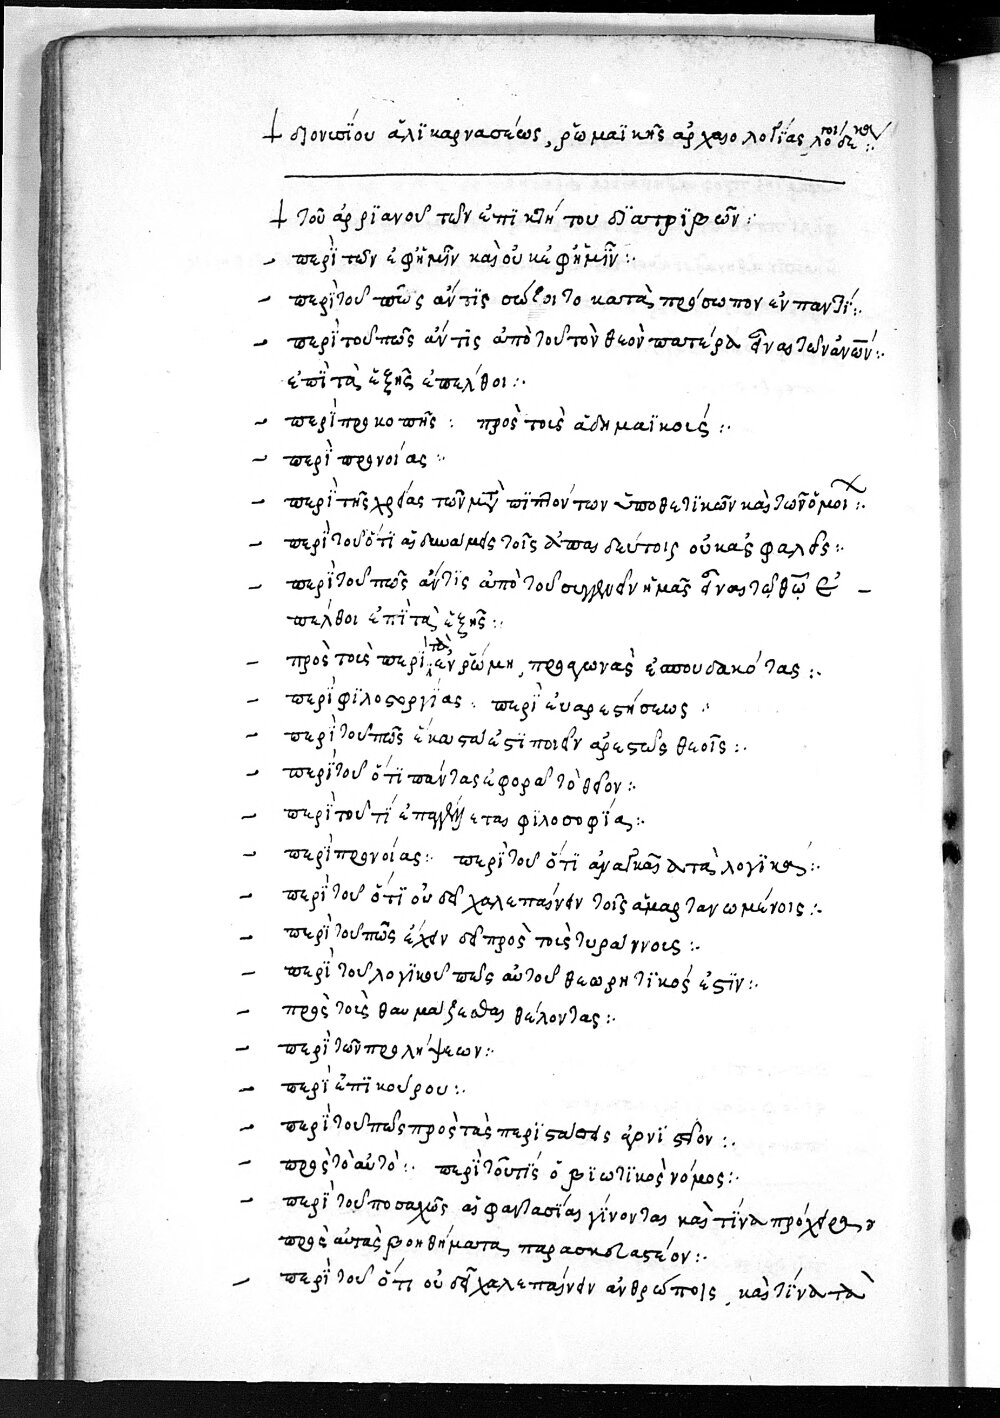 διονυσίου ἁλικαρνασέως, ῥωμαϊκῆς ἀρχαιολογίας
τοῦ ἀρριανοῦ τῶν ἐπικτήτου διατριβῶν :
περὶ τῶν ἐφ' ἡμῖν καὶ οὐκ ἐφ' ἡμῖν :
περὶ τοῦ πῶς ἄν τις σώζοι τὸ κατὰ πρόσωπον ἐν παντί :
περὶ τοῦ πῶς ἄν τις ἀπὸ τοῦ τὸν θεὸν πατέρα εἶναι τῶν ἀνων :
ἐπὶ τὰ ἑξῆς ἐπέλθοι :
περὶ προκοπῆς : πρὸς τοὺς ἀκαδημαϊκούς :
περὶ προνοίας :
περὶ τῆς χρείας τῶν μεταπιπτόντων ὑποθετικῶν καὶ τῶν ὁμοι :
περὶ τοῦ ὅτι αἱ δυνάμεις τοῖς ἀπαιδεύτοις οὐκ ἀσφαλεῖς :
περὶ τοῦ πῶς ἄν τις ἀπὸ τοῦ συγγενεῖν ἡμᾶς εἶναι τῷ θῷ ἐ
πέλθοι ἐπὶ τὰ ἑξῆς :
πρὸς τοὺς περὶ τὰς ἐν ῥώμῃ προαγωγὰς ἐσπουδακότας :
περὶ φιλοστοργίας : περὶ εὐαρεστήσεως :
περὶ τοῦ πῶς ἕκαστα ἐστὶ ποιεῖν ἀρεστῶς θεοῖς :
περὶ τοῦ ὅτι πάντας ἐφορᾷ τὸ θεῖον :
περὶ τοῦ τί ἐπαγγέλλεται φιλοσοφία :
περὶ προνοίας : περὶ τοῦ ὅτι ἀναγκαῖα τὰ λογικά :
περὶ τοῦ ὅτι οὐ δεῖ χαλεπαίνειν τοῖς ἁμαρτανομένοις :
περὶ τοῦ πῶς ἔχειν δεῖ πρὸς τοὺς τυράννους :
περὶ τοῦ λογικοῦ πῶς αὑτοῦ θεωρητικός ἐστιν :
πρὸς τοὺς θαυμάζεσθαι θέλοντας :
περὶ τῶν προλήψεων :
περὶ ἐπικούρου :
περὶ τοῦ πῶς πρὸς τὰς περιστάσεις ἀγωνιστέον :
πρὸς τὸ αὐτό : περὶ τοῦ τίς ὁ βιωτικὸς νόμος :
περὶ τοῦ ποσαχῶς αἱ φαντασίαι γίνονται καὶ τίνα πρόχειρα
πρὸς αὐτὰς βοηθήματα παρασκευαστέον :
περὶ τοῦ ὅτι οὐ δεῖ χαλεπαίνειν ἀνθρώποις, καὶ τίνα τὰ